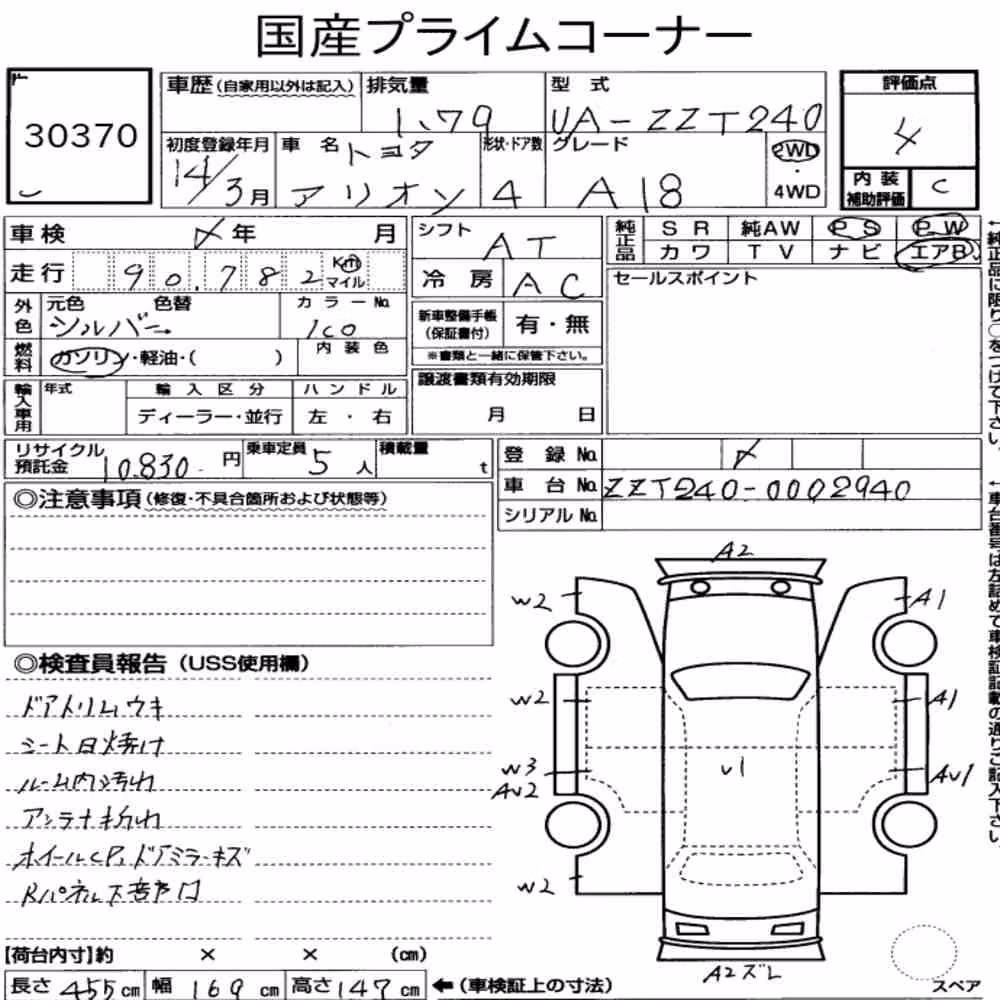 国産プライムコーナー
30370
車歴(自家用以外は記入) 排気量 1.79 型式 UA-ZZT240
評価点 4
初度登録年月 14/3月 車名 トヨタ アリオン 形状・ドア数 4 グレード A18 2WD・4WD
内装補助評価 C
車検 年 月
走行 90,782 Km マイル
シフト AT
冷房 AC
純正品 SR 純AW PS PW
カワ TV ナビ エアB
セールスポイント
外色 元色 色替 シルバー カラーNo. 1C0
燃料 ガソリン・軽油・( ) 内装色
新車整備手帳(保証書付) 有・無
※書類と一緒に保管下さい。
輸入車用 年式 輸入区分 ハンドル
ディーラー・並行 左・右
譲渡書類有効期限
月 日
リサイクル預託金 10.830- 円 乗車定員 5人 積載量 t
登録No.
車台No. ZZT240-0002940
シリアルNo.
◎注意事項(修復・不具合箇所および状態等)
◎検査員報告(USS使用欄)
ドアトリムウキ
シート日焼け
ルーム内汚れ
アンテナ折れ
ホイールCP、ドアミラーキズ
Rパネル下
A2
W2
A1
W2
A1
W3
AV2
V1
AV1
W2
A2ズレ
【荷台内寸】約 × × (cm)
長さ 455cm 幅 169cm 高さ 147cm ←(車検証上の寸法)
スペア
←純正品に限り○をつけて下さい。
←車台番号は左詰めで車検証記載の通りご記入下さい。